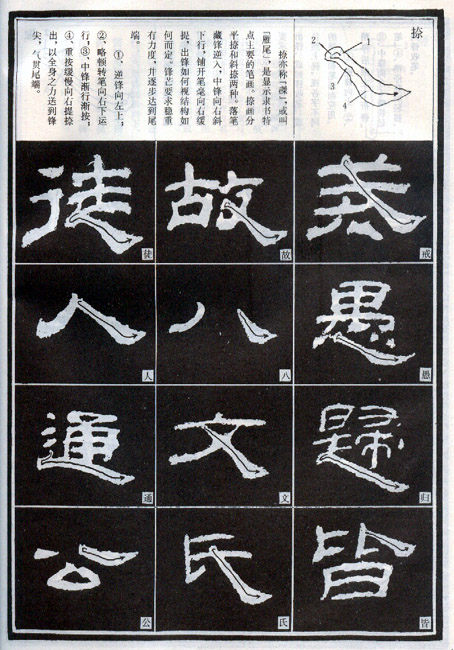 捺
1
2
3
4
捺亦称「磔」,或叫
「雁尾」,是显示隶书特
点主要的笔画。捺画分
平捺和斜捺两种。落笔
藏锋逆入,中锋向右斜
下行,铺开笔毫向右缓
提,出锋如何视结构如
何而定。锋芒要求稳重
有力度,并逐步达到尾
端。
①、逆锋向左上;
②、略顿转笔向右下运
行;③、中锋渐行渐按;
④、重按缓慢向右提捺
出,以全身之力送到锋
尖,气贯尾端。
戒
戒
愚
愚
歸
归
皆
皆
故
故
八
八
文
文
氏
氏
徒
徒
人
人
通
通
公
公